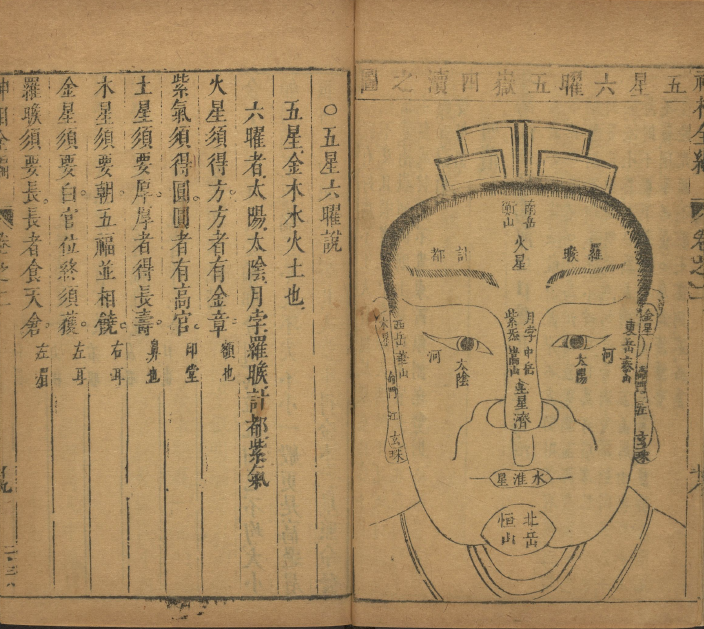 五星六曜五嶽四瀆之圖
南岳
衡山
火星
羅睺
計都
月孛
紫炁
中岳
嵩山
土星
濟
太陽
太陰
河
河
金星
東岳
泰山
玄珠
西岳
華山
木星
命門
江
玄珠
水淮星
北岳
恒山
〇五星六曜說
五星金木水火土也
六曜者太陽太陰月孛羅睺計都紫氣
火星須得方方者有金章。額也
紫氣須得圓圓者有高官。印堂
土星須要厚厚者得長壽。鼻也
木星須要朝五福並相饒。右耳
金星須要白官位終須獲。左耳
羅睺須要長長者食天倉。左眉